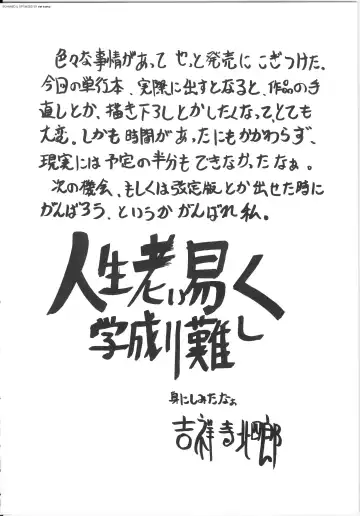 色々な事情があって やっと発売に こぎつけた。
今回の単行本、実際に出すとなると、作品の手
直しとか、描き下ろしとかしたくなって、とても
大変。しかも時間があったにもかかわらず、
現実には予定の半分もできなかったなぁ。
次の機会、もしくは改定版とか出せた時に
がんばろう、というか がんばれ 私。
人生老い易く
学成り難し
身にしみたなぁ
吉祥寺北四郎